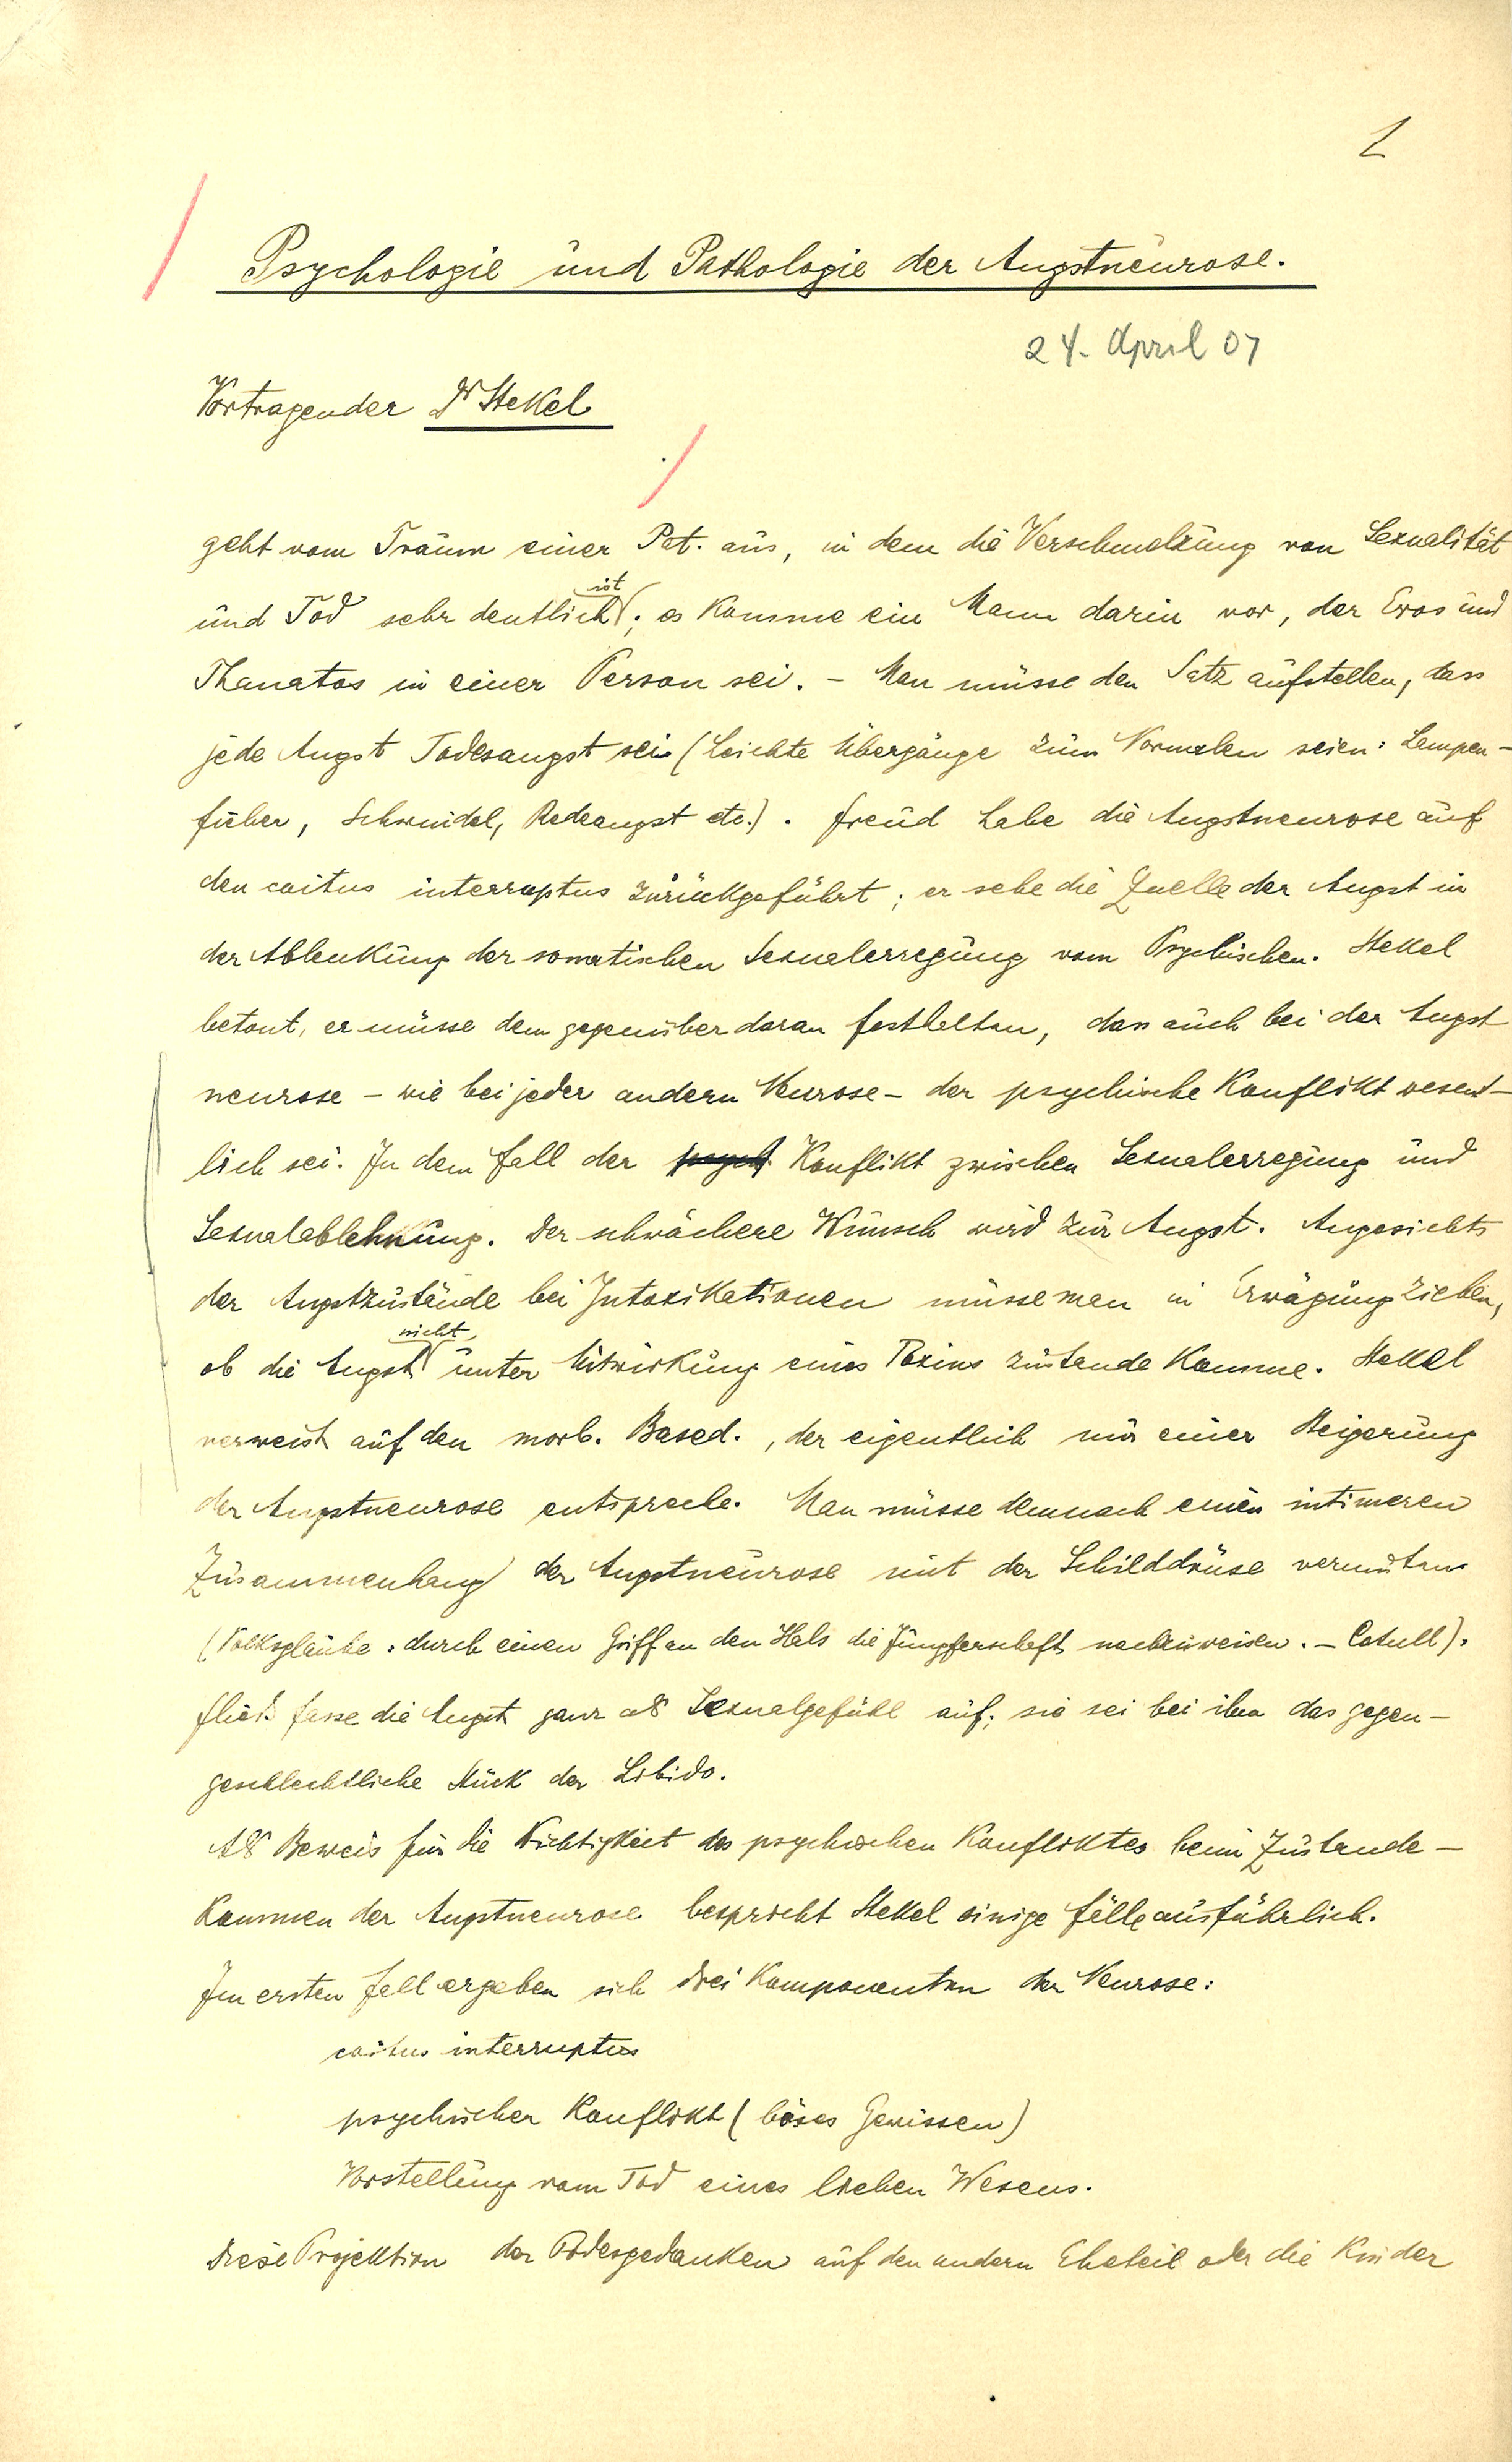 1
Psychologie und Pathologie der Angstneurose.
24. April 07
Vortragender Dr Stekel
geht vom Traum einer Pat. aus, in dem die Verschmelzung von Sexualität
ist
und Tod sehr deutlich; es komme ein Mann darin vor, der Eros und
Thanatos in einer Person sei. – Man müsse den Satz aufstellen, dass
jede Angst Todesangst sei (leichte Übergänge zum Normalen seien: Lampen-
fieber, Schwindel, Redeangst etc.). Freud habe die Angstneurose auf
den coitus interruptus zurückgeführt; er sehe die Quelle der Angst in
der Ablenkung der somatischen Sexualerregung vom Psychischen. Stekel
betont, er müsse dem gegenüber daran festhalten, dass auch bei der Angst
neurose – wie bei jeder andern Neurose – der psychische Konflikt wesent-
lich sei. In dem Fall der psych. Konflikt zwischen Sexualerregung und
Sexualablehnung. Der schwächere Wunsch wird zur Angst. Angesichts
der Angstzustände bei Intoxikationen müsse man in Erwägung ziehen,
nicht
ob die Angst unter Mitwirkung eines Toxins zustande komme. Stekel
verweist auf den morb. Based., der eigentlich nur einer Steigerung
der Angstneurose entspreche. Man müsse demnach einen intimeren
Zusammenhang der Angstneurose mit der Schilddrüse vermuten
(Volksglaube: durch einen Griff an den Hals die Jungferschaft nachzuweisen. – Catull).
Fließ fasse die Angst ganz als Sexualgefühl auf; sie sei bei ihm das gegen-
geschlechtliche Stück der Libido.
Als Beweis für die Wichtigkeit des psychischen Konfliktes beim Zustande-
kommen der Angstneurose bespricht Stekel einige Fälle ausführlich.
Im ersten Fall ergeben sich drei Komponenten der Neurose:
coitus interruptus
psychischer Konflikt (böses Gewissen)
Vorstellung vom Tod eines lieben Wesens.
Diese Projektion der Todesgedanken auf den andern Eheteil oder die Kinder